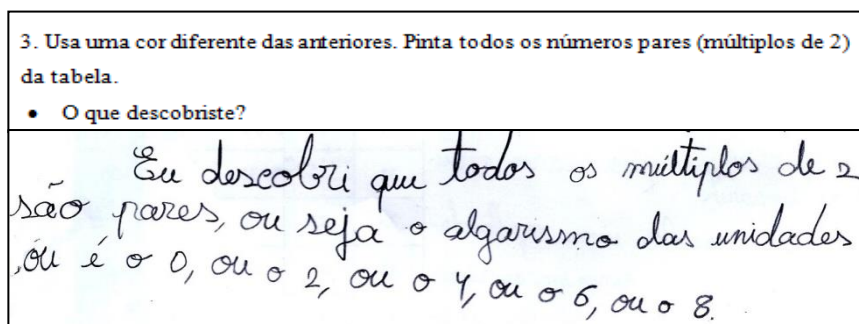 3. Usa uma cor diferente das anteriores. Pinta todos os números pares (múltiplos de 2)
da tabela.
• O que descobriste?
Eu descobri que todos os múltiplos de 2
são pares, ou seja o algarismo das unidades
,ou é o 0, ou o 2, ou o 4, ou o 6, ou o 8.